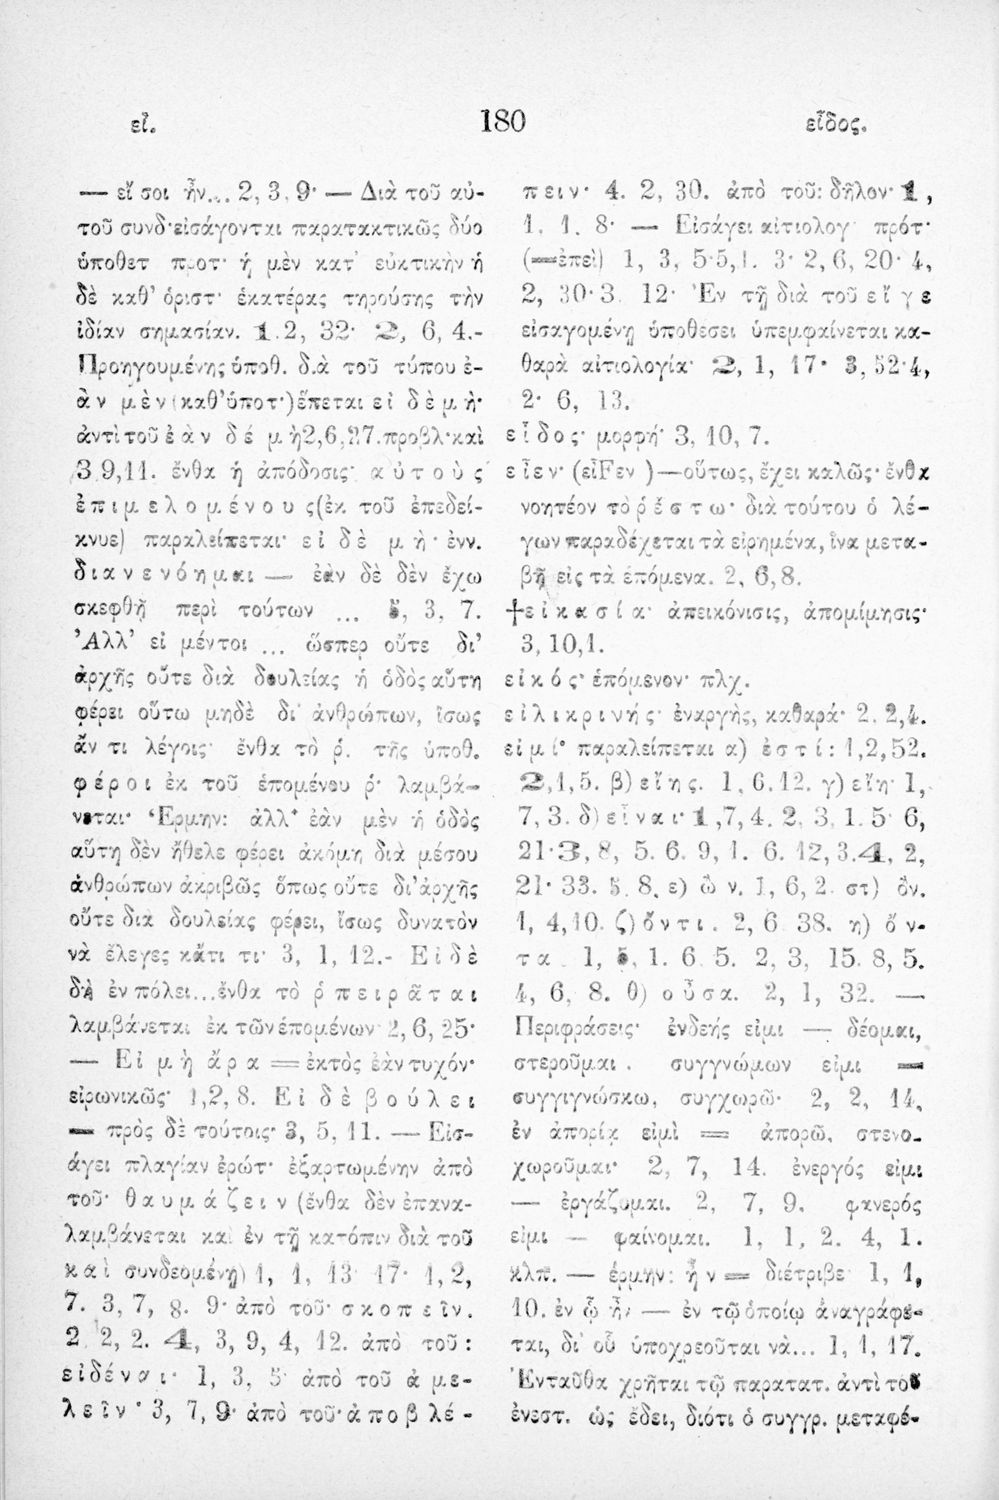 εἰ.
180
εἶδος.
— εἴ σοι ἦν... 2, 3, 9· — Διὰ τοῦ αὐ-
τοῦ συνδ·εἰσάγονται παρατακτικῶς δύο
ὑποθετ προτ· ἡ μὲν κατ' εὐκτικὴν ἡ
δὲ καθ' ὁριστ· ἑκατέρας τηρούσης τὴν
ἰδίαν σημασίαν. 1.2, 32· 2, 6, 4.-
Προηγουμένης ὑποθ. διὰ τοῦ τύπου ἐ-
ὰν μὲν (καθ' ὑποτ·) ἕπεται εἰ δὲ μή·
ἀντὶ τοῦ ἐὰν δέ μὴ 2,6,27.προβλ·καὶ
3 9,11. ἔνθα ἡ ἀπόδοσις· αὐτοὺς
ἐπιμελομένους (ἐκ τοῦ ἐπεδεί-
κνυε) παραλείπεται· εἰ δὲ μή· ἐνν.
διανενόημαι — ἐὰν δὲ δὲν ἔχω
σκεφθῆ περὶ τούτων ... 5, 3, 7.
'Αλλ' εἰ μέντοι ... ὥσπερ οὔτε δι'
ἀρχῆς οὔτε διὰ δουλείας ἡ ὁδὸς αὕτη
φέρει οὕτω μηδὲ δι' ἀνθρώπων, ἴσως
ἄν τι λέγοις· ἔνθα τὸ ῥ. τῆς ὑποθ.
φέροι ἐκ τοῦ ἑπομένου ῥ· λαμβά-
νεται· 'Ερμην: ἀλλ' ἐὰν μὲν ἡ ὁδὸς
αὕτη δὲν ἤθελε φέρει ἀκόμη διὰ μέσου
ἀνθρώπων ἀκριβῶς ὅπως οὔτε δι'ἀρχῆς
οὔτε διὰ δουλείας φέρει, ἴσως δυνατὸν
νὰ ἔλεγες κἄτι τι· 3, 1, 12.- Εἰ δὲ
δὴ ἐν πόλει...ἔνθα τὸ ῥ πειρᾶται
λαμβάνεται ἐκ τῶν ἑπομένων 2, 6, 25·
— Εἰ μὴ ἄρα = ἐκτὸς ἐὰν τυχόν·
εἰρωνικῶς· 1,2, 8. Εἰ δὲ βούλει
— πρὸς δὲ τούτοις· 3, 5, 11. — Εἰσ-
άγει πλαγίαν ἐρώτ· ἐξαρτωμένην ἀπὸ
τοῦ· θαυμάζειν (ἔνθα δὲν ἐπανα-
λαμβάνεται καὶ ἐν τῇ κατόπιν διὰ τοῦ
καὶ συνδεομένῃ) 1, 1, 13· 17· 1, 2,
7. 3, 7, 8. 9· ἀπὸ τοῦ· σκοπεῖν.
2 2, 2. 4, 3, 9, 4, 12. ἀπὸ τοῦ:
εἰδέναι· 1, 3, 5· ἀπὸ τοῦ ἀμε-
λεῖν· 3, 7, 9· ἀπὸ τοῦ· ἀποβλέ-
πειν· 4. 2, 30. ἀπὸ τοῦ: δῆλον· 1,
1. 1. 8· — Εἰσάγει αἰτιολογ· πρότ·
(=ἐπεὶ) 1, 3, 5·5,1. 3· 2, 6, 20· 4,
2, 30·3. 12· 'Εν τῇ διὰ τοῦ εἴ γε
εἰσαγομένῃ ὑποθέσει ὑπεμφαίνεται κα-
θαρὰ αἰτιολογία· 2, 1, 17· 3, 52·4,
2· 6, 13.
εἶδος· μορφή· 3, 10, 7.
εἶεν· (εἶFεν )—οὕτως, ἔχει καλῶς· ἔνθα
νοητέον τὸ ῥ ἔστω· διὰ τούτου ὁ λέ-
γων παραδέχεται τὰ εἰρημένα, ἵνα μετα-
βῇ εἰς τὰ ἑπόμενα. 2, 6,8.
†εἰκασία· ἀπεικόνισις, ἀπομίμησις·
3, 10,1.
εἰκός· ἑπόμενον· πλχ.
εἰλικρινής· ἐναργής, καθαρά· 2. 2,4.
εἰμί· παραλείπεται α) ἐστί: 1,2,52.
2,1,5. β) εἴης. 1, 6.12. γ) εἴη· 1,
7, 3. δ) εἶναι· 1,7, 4. 2, 3, 1. 5· 6,
21·3, 8, 5. 6. 9, 1. 6. 12, 3.4, 2,
21· 33. 5. 8. ε) ὢν. 1, 6, 2. στ) ὂν.
1, 4,10. ζ) ὄντι. 2, 6 38. η) ὄν-
τα 1, 5, 1. 6. 5. 2, 3, 15. 8, 5.
4, 6, 8. θ) οὖσα. 2, 1, 32. —
Περιφράσεις· ἐνδεής εἰμι — δέομαι,
στεροῦμαι. συγγνώμων εἰμι =
συγγιγνώσκω, συγχωρῶ· 2, 2, 14,
ἐν ἀπορίᾳ εἰμὶ = ἀπορῶ, στενο-
χωροῦμαι· 2, 7, 14. ἐνεργός εἰμι
— ἐργάζομαι. 2, 7, 9. φανερός
εἰμι — φαίνομαι. 1, 1, 2. 4, 1.
κλπ. — ἑρμην: ἦν = διέτριβε· 1, 1,
10. ἐν ᾧ ἦν — ἐν τῷ ὁποίῳ ἀναγράφε-
ται, δι' οὗ ὑποχρεοῦται νὰ... 1, 1, 17.
'Ενταῦθα χρῆται τῷ παρατατ. ἀντὶ τοῦ
ἐνεστ. ὡς ἔδει, διότι ὁ συγγρ. μεταφέ-